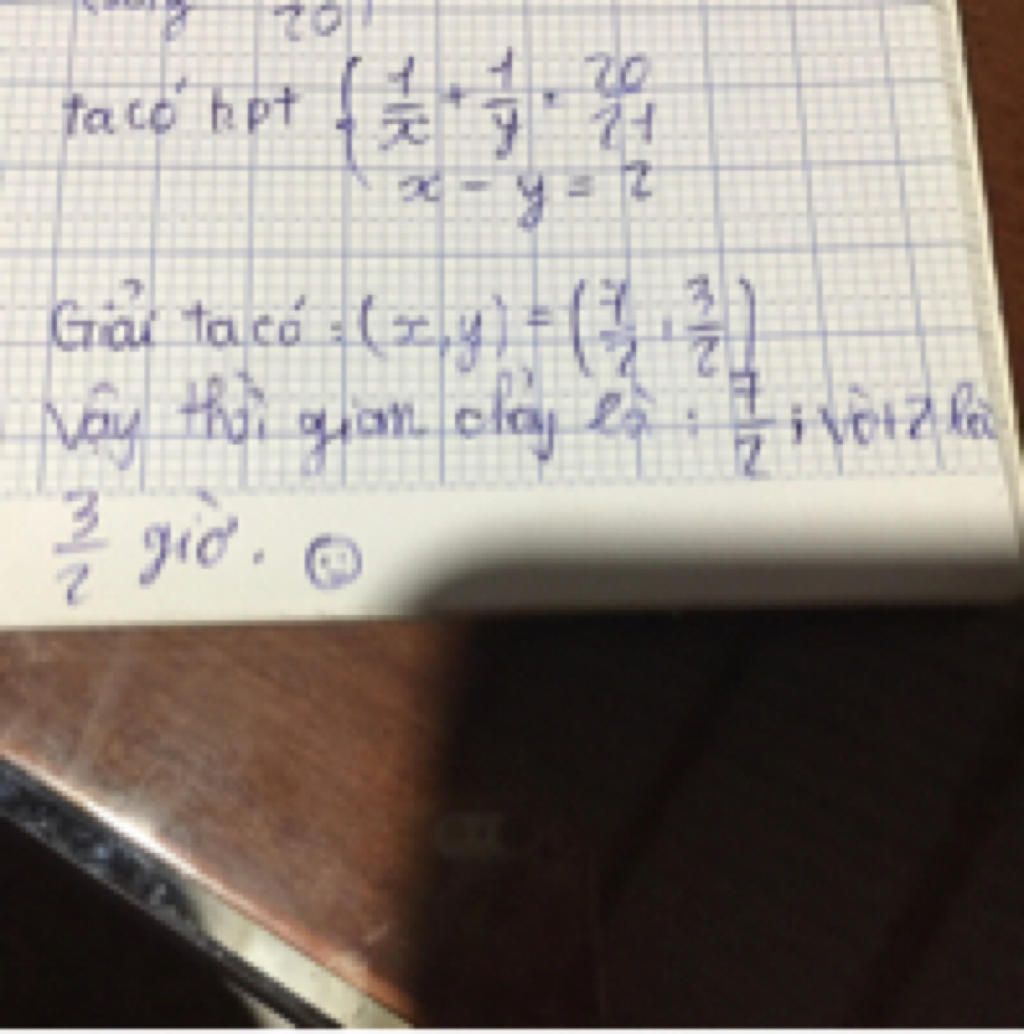 20
ta có hpt { 1/x + 1/y = 20/21
x - y = 2
Giải ta có : (x, y) = (7/2, 3/2)
Vậy thời gian chảy là : 7/2 ; vòi 2 là
3/2 giờ.